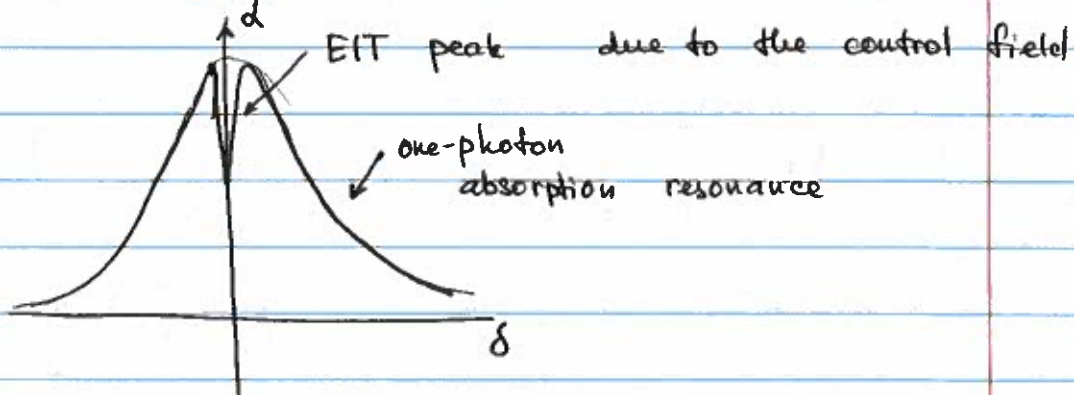 α
EIT peak due to the control field
one-photon
absorption resonance
δ